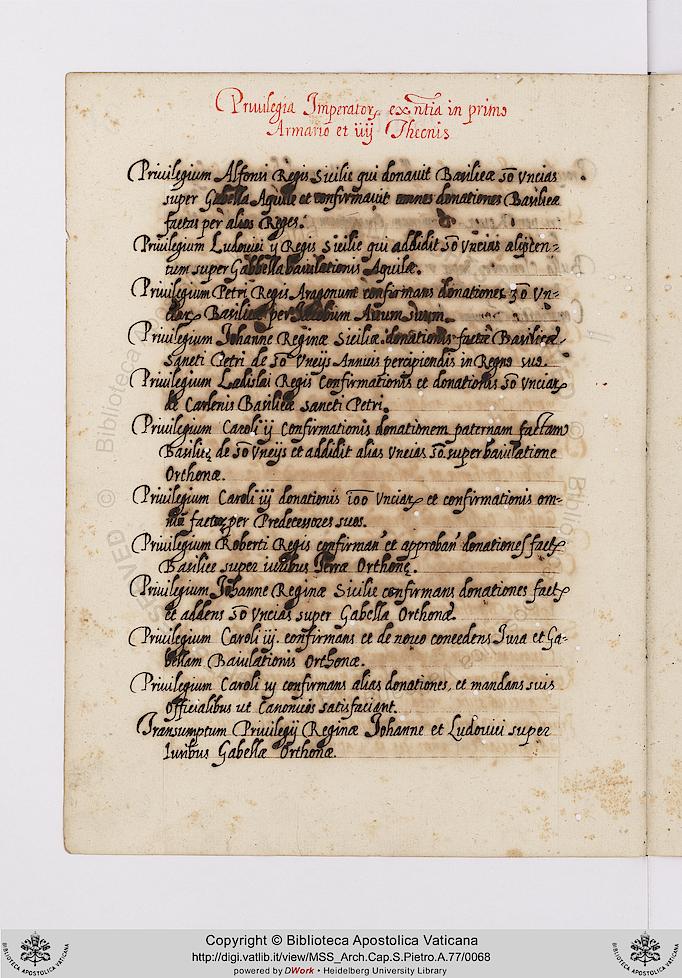 Priuilegia Imperator, exñtia in primo
Armario et iiij Thecnis
Priuilegium Alfonsi Regis Sicilie qui donauit Basilicæ 50 Vncias
super Gabella Aquile et confirmauit omnes donationes Basilicæ
factas per alios Reges.
Priuilegium Ludouici ij Regis Sicilie qui addidit 50 Vncias
super Gabbella baiulationis Aquilæ.
Priuilegium Petri Regis Aragonum confirmans donationes 30 Vn=
Basilicæ per Iacobum Auum suum.
Priuilegium Johanne Reginæ Siciliæ donationis factæ Basilicæ
Sancti Petri de 50 Vncijs Annuis percipiendis in Regno suo.
Priuilegium Ladislai Regis Confirmationis et donationis 50 Vnciar
de Carlenis Basilicæ Sancti Petri.
Priuilegium Caroli ij Confirmationis donationem paternam factam
de 50 Vncijs et addidit alias Vncias 50 super baiulatione
Orthonæ.
Priuilegium Caroli iij donationis 100 Vnciar et confirmationis om=
per Predecessores suos.
Priuilegium Roberti Regis confirman et approban donationes fact
Basilice super iuribus Terræ Orthonę.
Priuilegium Johanne Reginæ Sicilie confirmans donationes fact
et addens 50 Vncias super Gabella Orthonæ.
Priuilegium Caroli iij. confirmans et de nouo concedens Jura et Ga=
bellam Baiulationis Orthonæ.
Priuilegium Caroli iij confirmans alias donationes, et mandans suis
Officialibus ut Canonicos satisfaciant.
Transumptum Priuilegij Reginæ Johanne et Ludouici super
Iuribus Gabellæ Orthonæ.
Copyright © Biblioteca Apostolica Vaticana
http://digi.vatlib.it/view/MSS_Arch.Cap.S.Pietro.A.77/0068
powered by DWork • Heidelberg University Library